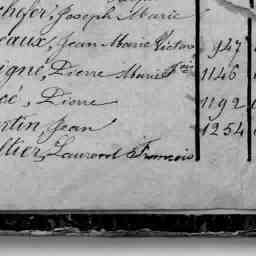 hofer, Joseph Marie
eaux, Jean Marie Victor 947
igné, Pierre Marie Fois 1146
cé, Pierre 1192
rtin, Jean 1254
ltier, Laurent François